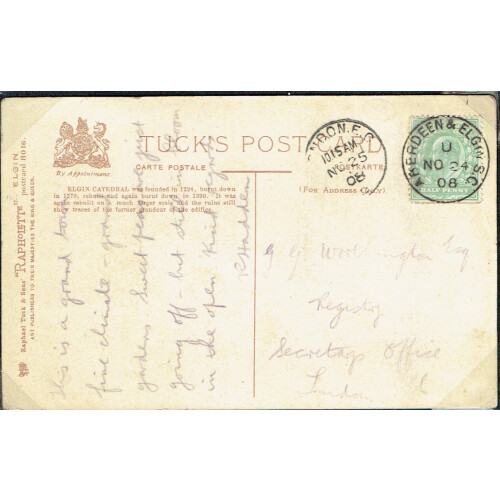 TUCK'S POST CARD
CARTE POSTALE
POSTKARTE
By Appointment.
(FOR ADDRESS ONLY)
ELGIN CATHEDRAL was founded in 1224, burnt down
in 1270, rebuilt and again burnt down in 1390. It was
again rebuilt on a much larger scale and the ruins still
show traces of the former grandeur of the edifice.
Raphael Tuck & Sons' "RAPHOLETTE" ELGIN postcard 8016.
ART PUBLISHERS TO THEIR MAJESTIES THE KING & QUEEN.
LONDON. E.C.
10.15 AM
NO 25
08
ABERDEEN & ELGIN S.C.
U
NO 24
08
HALF PENNY
This is a grand town
fine climate - good
gardens Sweet peas are just
going off - but dahlias in bloom
in the open Kind regards
G. G. Worthington Esq
Registry
Secretary's Office
London